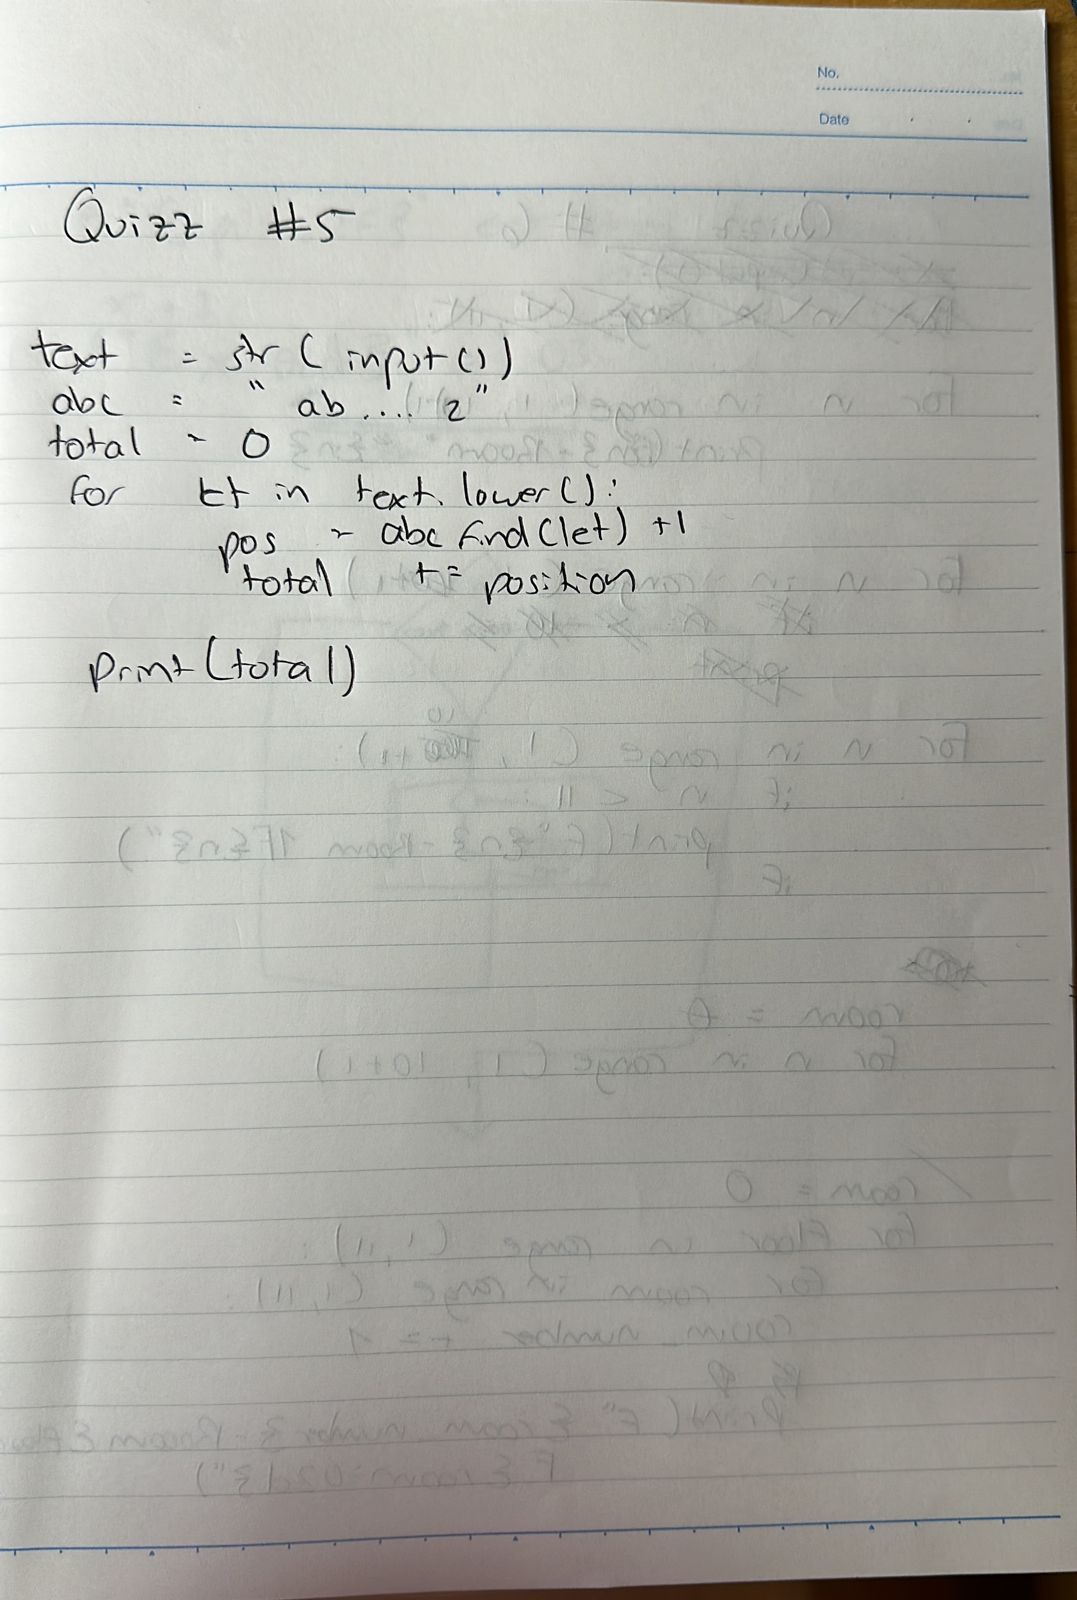 No.
Date
Quizz #5
text = str ( input())
abc = "ab....z"
total = 0
for let in text.lower():
pos = abc find(let) +1
total += position
print(total)